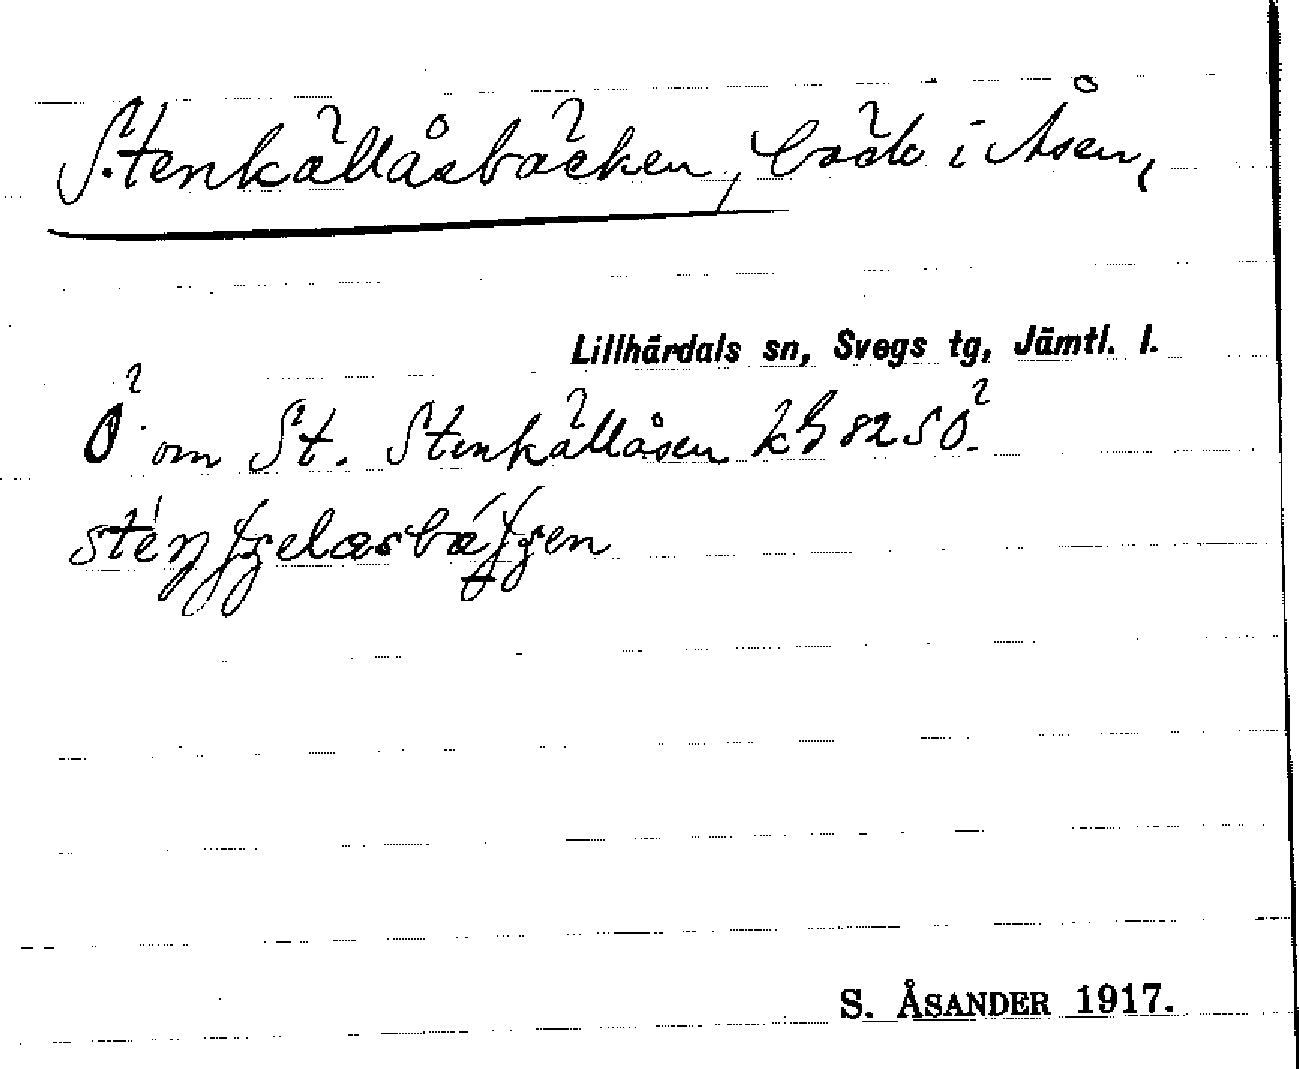 Stenkällåsbäcken, bäck i Åsen,
Lillhärdals sn, Svegs tg, Jämtl. l.
Ö om St. Stenkällåsen kb 82 SÖ.
S. ÅSANDER 1917.